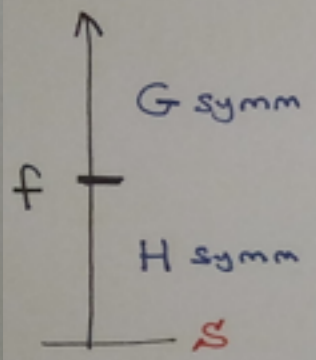 G symm
f
H symm
S